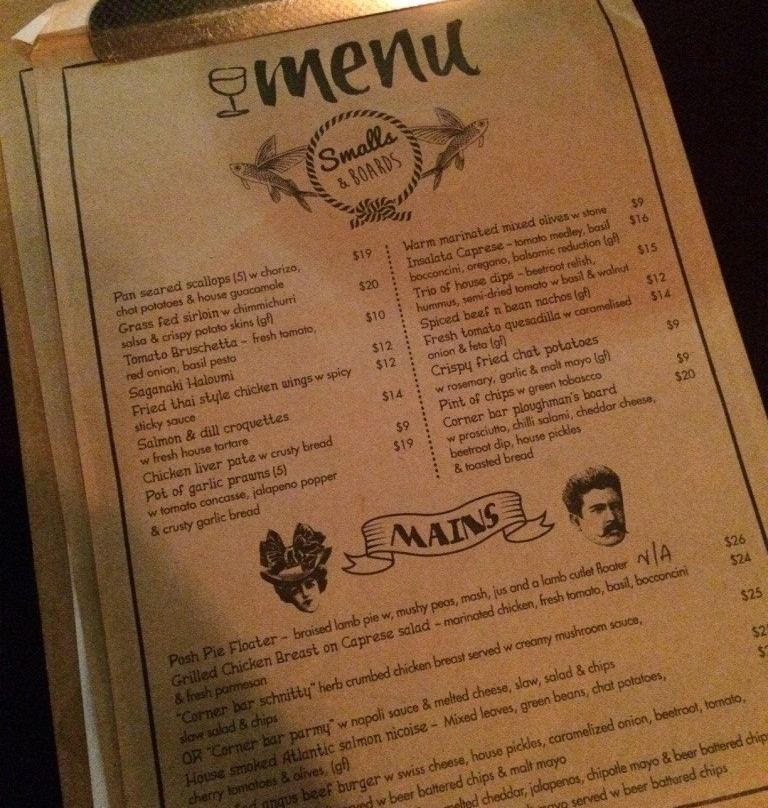 menu
Smalls
& BOARDS
Pan seared scallops (5) w chorizo, $19
chat potatoes & house guacamole
Grass fed sirloin w chimmichurri $20
salsa & crispy potato skins (gf)
Tomato Bruschetta - fresh tomato, $10
red onion, basil pesto
Saganaki Haloumi $12
Fried thai style chicken wings w spicy $12
sticky sauce
Salmon & dill croquettes $14
w fresh house tartare
Chicken liver pate w crusty bread $9
Pot of garlic prawns (5) $19
w tomato concasse, jalapeno popper
& crusty garlic bread
Warm marinated mixed olives w stone $9
Insalata Caprese - tomato medley, basil $16
bocconcini, oregano, balsamic reduction (gf)
Trio of house dips - beetroot relish, $15
hummus, semi-dried tomato w basil & walnut
Spiced beef n bean nachos (gf) $12
Fresh tomato quesadilla w caramelised $14
onion & feta (gf)
Crispy fried chat potatoes $9
w rosemary, garlic & malt mayo (gf)
Pint of chips w green tobascco $9
Corner bar ploughman's board $20
w prosciutto, chilli salami, cheddar cheese,
beetroot dip, house pickles
& toasted bread
MAINS
Posh Pie Floater - braised lamb pie w, mushy peas, mash, jus and a lamb cutlet floater N/A $26
Grilled Chicken Breast on Caprese salad - marinated chicken, fresh tomato, basil, bocconcini $24
& fresh parmesan
"Corner bar schnitty" herb crumbed chicken breast served w creamy mushroom sauce, $25
slaw salad & chips
OR "Corner bar parmy" w napoli sauce & melted cheese, slaw, salad & chips
House smoked Atlantic salmon nicoise - Mixed leaves, green beans, chat potatoes,
cherry tomatoes & olives, (gf)
angus beef burger w swiss cheese, house pickles, caramelized onion, beetroot, tomato,
w beer battered chips & malt mayo
melted cheddar, jalapenos, chipotle mayo & beer battered chips
mayo served w beer battered chips